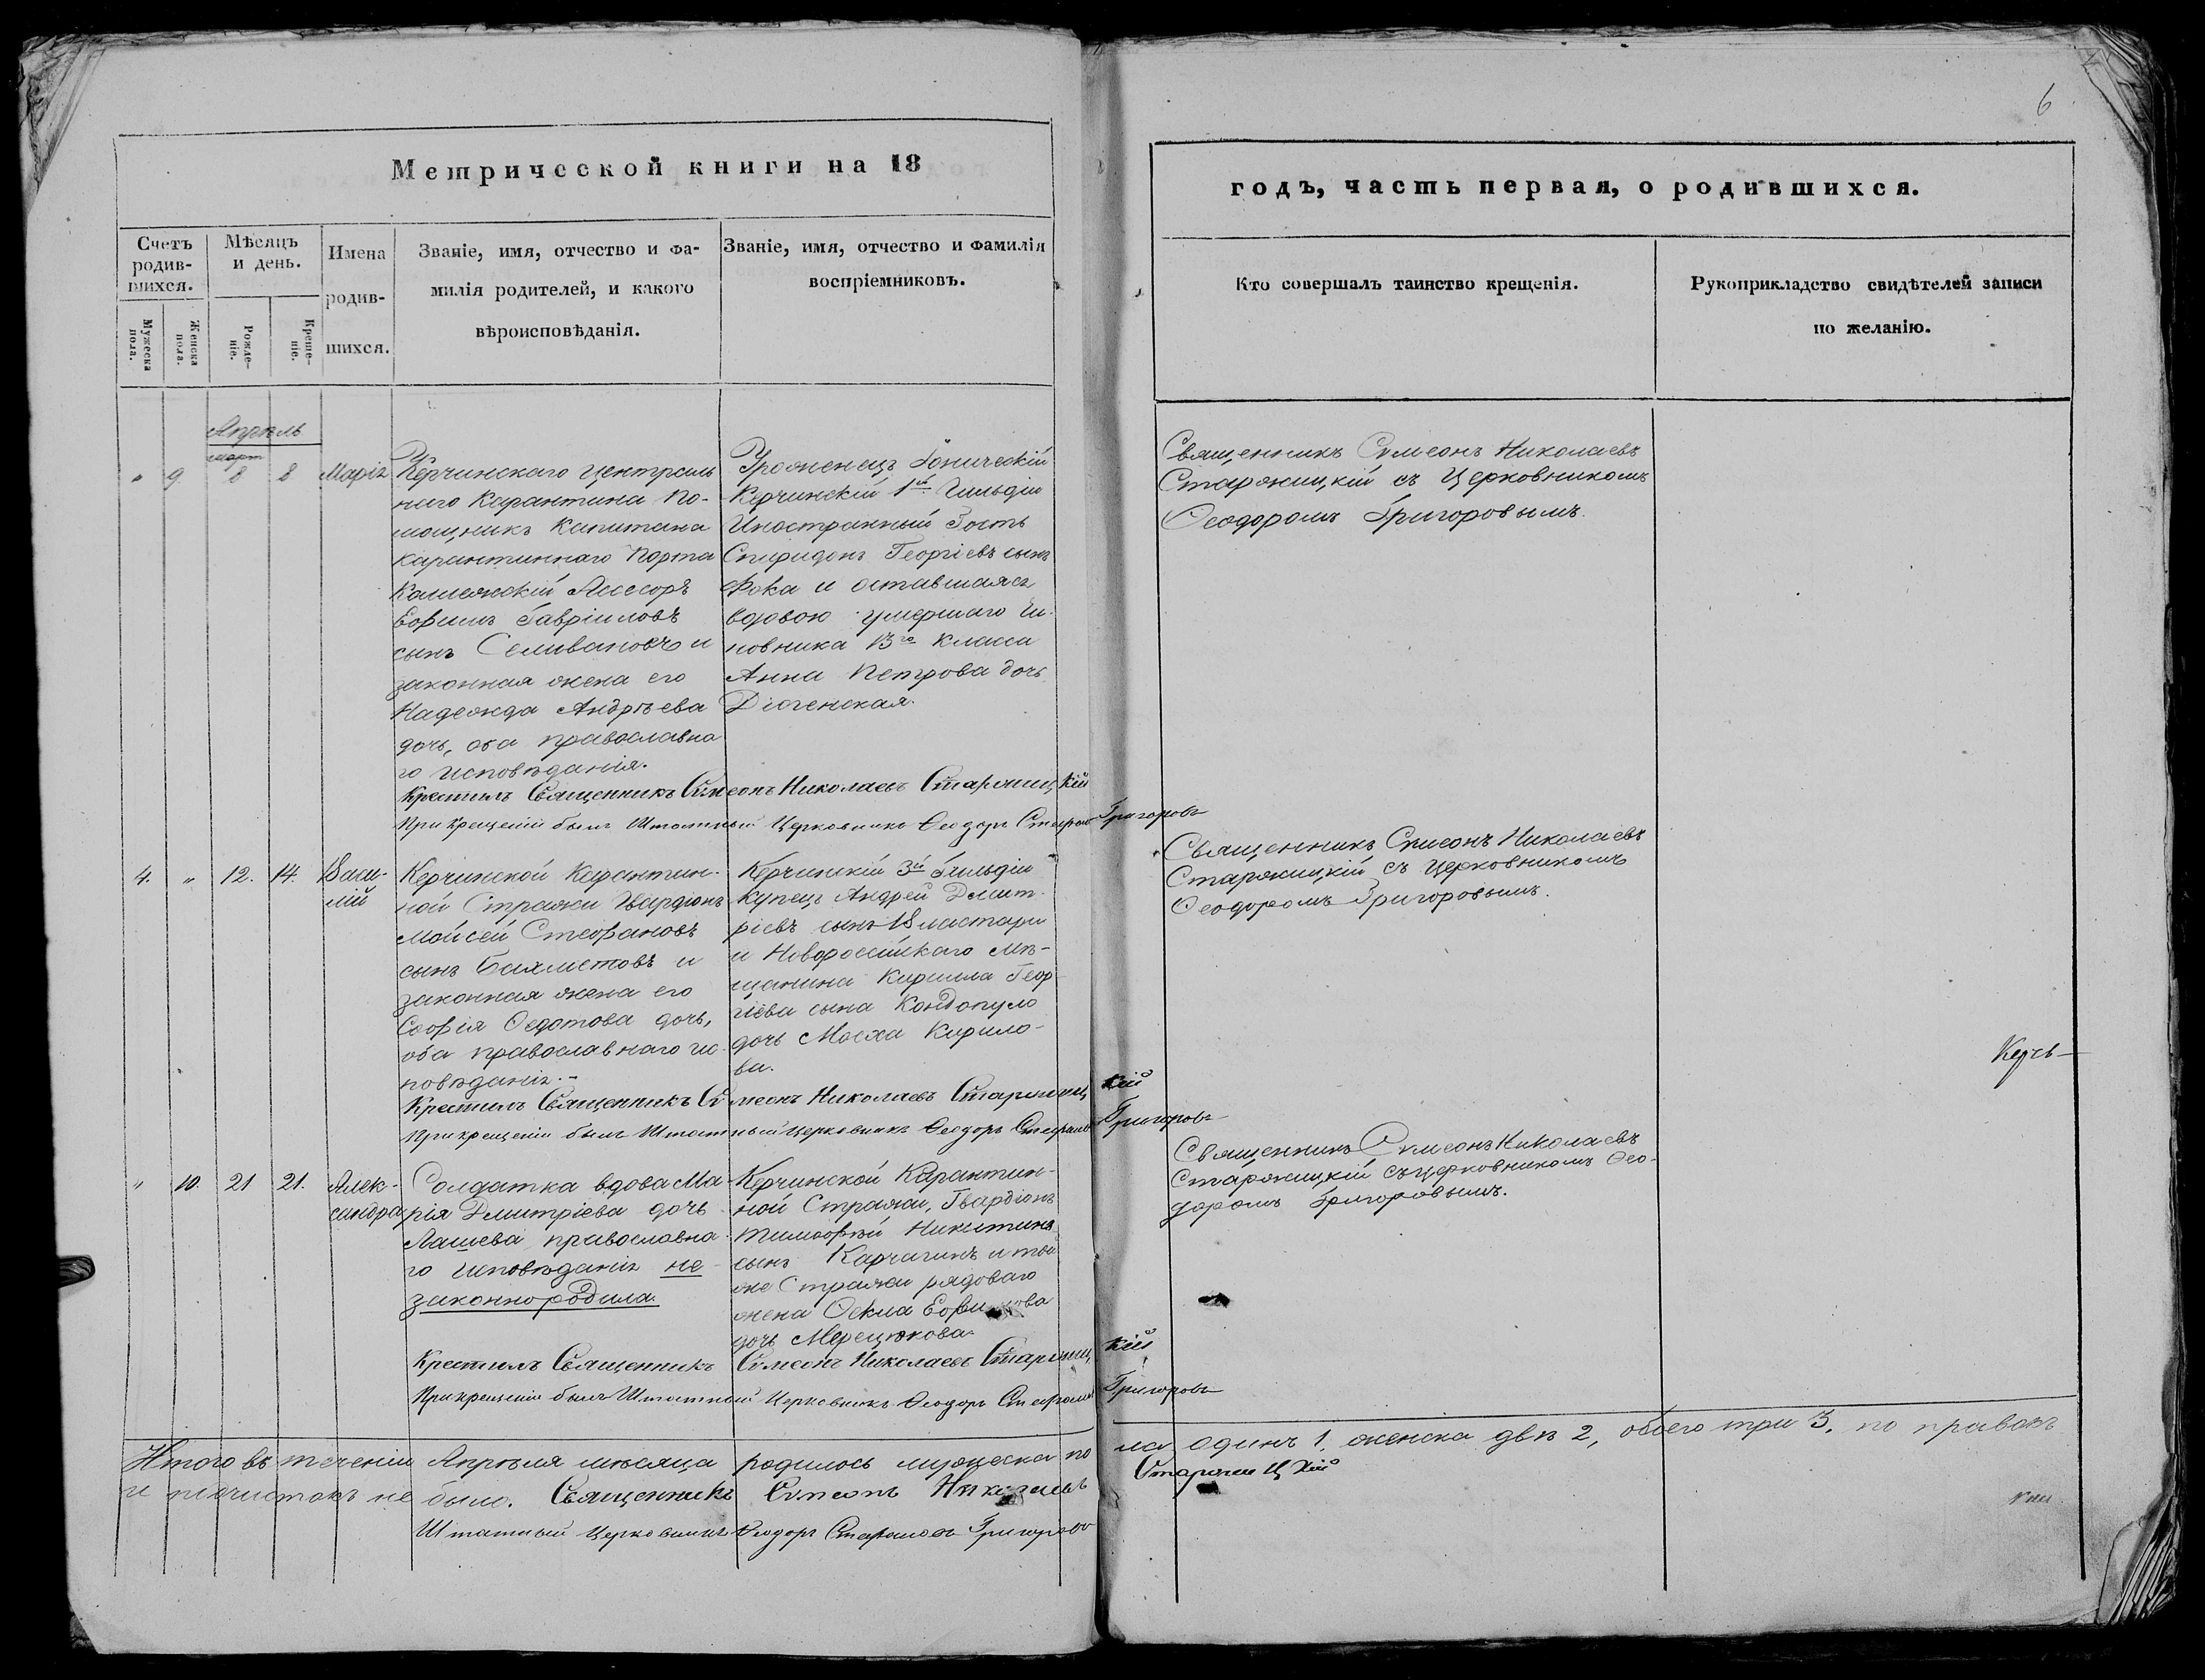 6
Метрической книги на 18
годъ, часть первая, о родившихся.
Счетъ родив-шихся.
Мѣсяцъ и день.
Имена родив-шихся.
Званіе, имя, отчество и фа-
милія родителей, и какого
вѣроисповѣданія.
Званіе, имя, отчество и фамилія
воспріемниковъ.
Кто совершалъ таинство крещенія.
Рукоприкладство свидѣтелей записи
по желанію.
Мужеска пола.
Женска пола.
Рожде-ніе.
Креще-ніе.
Апрѣль
март
" 9. 8 8 Марія
Керчинскаго Централь
наго Карантина По-
мощникъ Капитана
карантиннаго Порта
Коллежскій Ассесоръ
Ефимъ Гавріиловъ
сынъ Селивановъ и
законная жена его
Надежда Андрѣева
дочь, оба православна
го исповѣданія.
Уроженецъ Іоническій
Керчинскій 1й Гильдіи
Иностранный Гость
Спиридонъ Георгіевъ сынъ
Фока и оставшаяся
вдовою умершаго Чи-
новника 13го класса
Анна Петрова дочь
Діогенская.
Священникъ Симеонъ Николаевъ
Старжицкій съ Церковникомъ
Ѳеодоромъ Григоровымъ.
Крестилъ Священникъ Симеонъ Николаевъ Старжицкій
При крещеніи былъ Штатный Церковникъ Ѳеодоръ Стефано Григоровъ
4. " 12. 14. Васи-
лій
Керчинской Карантин-
ной Стражи Гвардіонъ
Моисей Стефановъ
сынъ Бахметовъ и
законная жена его
Софія Ѳедотова дочь,
оба православнаго ис-
повѣданія.-
Керчинскій 3й Гильдіи
Купецъ Андрей Дмит-
ріевъ сынъ Властари
и Новороссійскаго мѣ-
щанина Кирилла Геор-
гіева сына Кондопуло
дочь Мосха Кирило-
ва.
Священникъ Симеонъ Николаевъ
Старжицкій съ Церковникомъ
Ѳеодоромъ Григоровымъ.
Керчь-
Крестилъ Священникъ Симеонъ Николаевъ Старжицкій
При крещеніи былъ Штатный Церковникъ Ѳеодоръ Стефано Григоровъ
" 10. 21 21. Алек-
сандра
Солдатка вдова Ма-
рія Дмитріева дочь
Лашева православна-
го исповѣданія не-
законно родила.
Керчинской Карантин-
ной Стражи, Гвардіонъ
Тимофѣй Никитинъ
сынъ Карчагинъ и той
же Стражи рядоваго
жена Ѳекла
дочь Мерецюкова.
Священникъ Симеонъ Николаевъ
Старжицкій съ Церковникомъ Ѳео-
доромъ Григоровымъ.
Крестилъ Священникъ Симеонъ Николаевъ Старжицкій
При крещеніи былъ Штатный Церковникъ Ѳеодоръ Стефановъ Григоровъ
Итого въ теченіи Апрѣля мѣсяца родилось мужеска пола одинъ 1. женска двѣ 2, обоего три 3. по правокъ
и почистокъ не было. Священникъ Симеонъ Николаевъ Старжицкій
Штатный Церковникъ Ѳеодоръ Стефановъ Григоровъ